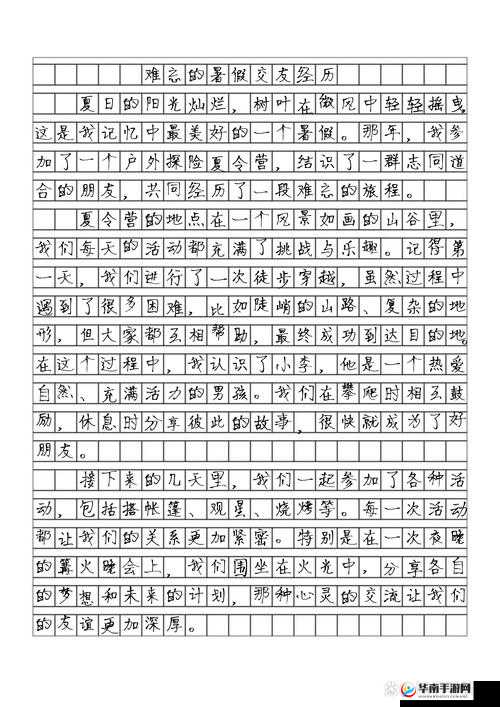 难忘的暑假交友经历
夏日的阳光灿烂，树叶在微风中轻轻摇曳，
这是我记忆中最美好的一个暑假。那年，我参
加了一个户外探险夏令营，结识了一群志同道
合的朋友，共同经历了一段难忘的旅程。
夏令营的地点在一个风景如画的山谷里，
我们每天的活动都充满了挑战与乐趣。记得第
一天，我们进行了一次徒步穿越，虽然过程中
遇到了很多困难，比如陡峭的山路、复杂的地
形，但大家都互相帮助，最终成功到达目的地。
在这个过程中，我认识了小李，他是一个热爱
自然、充满活力的男孩。我们在攀爬时相互鼓
励，休息时分享彼此的故事，很快就成为了好
朋友。
接下来的几天里，我们一起参加了各种活
动，包括搭帐篷、观星、烧烤等。每一次活动
都让我们的关系更加紧密。特别是在一次夜晚
的篝火晚会上，我们围坐在火光中，分享各自
的梦想和未来的计划，那种心灵的交流让我们
的友谊更加深厚。
华南手游网